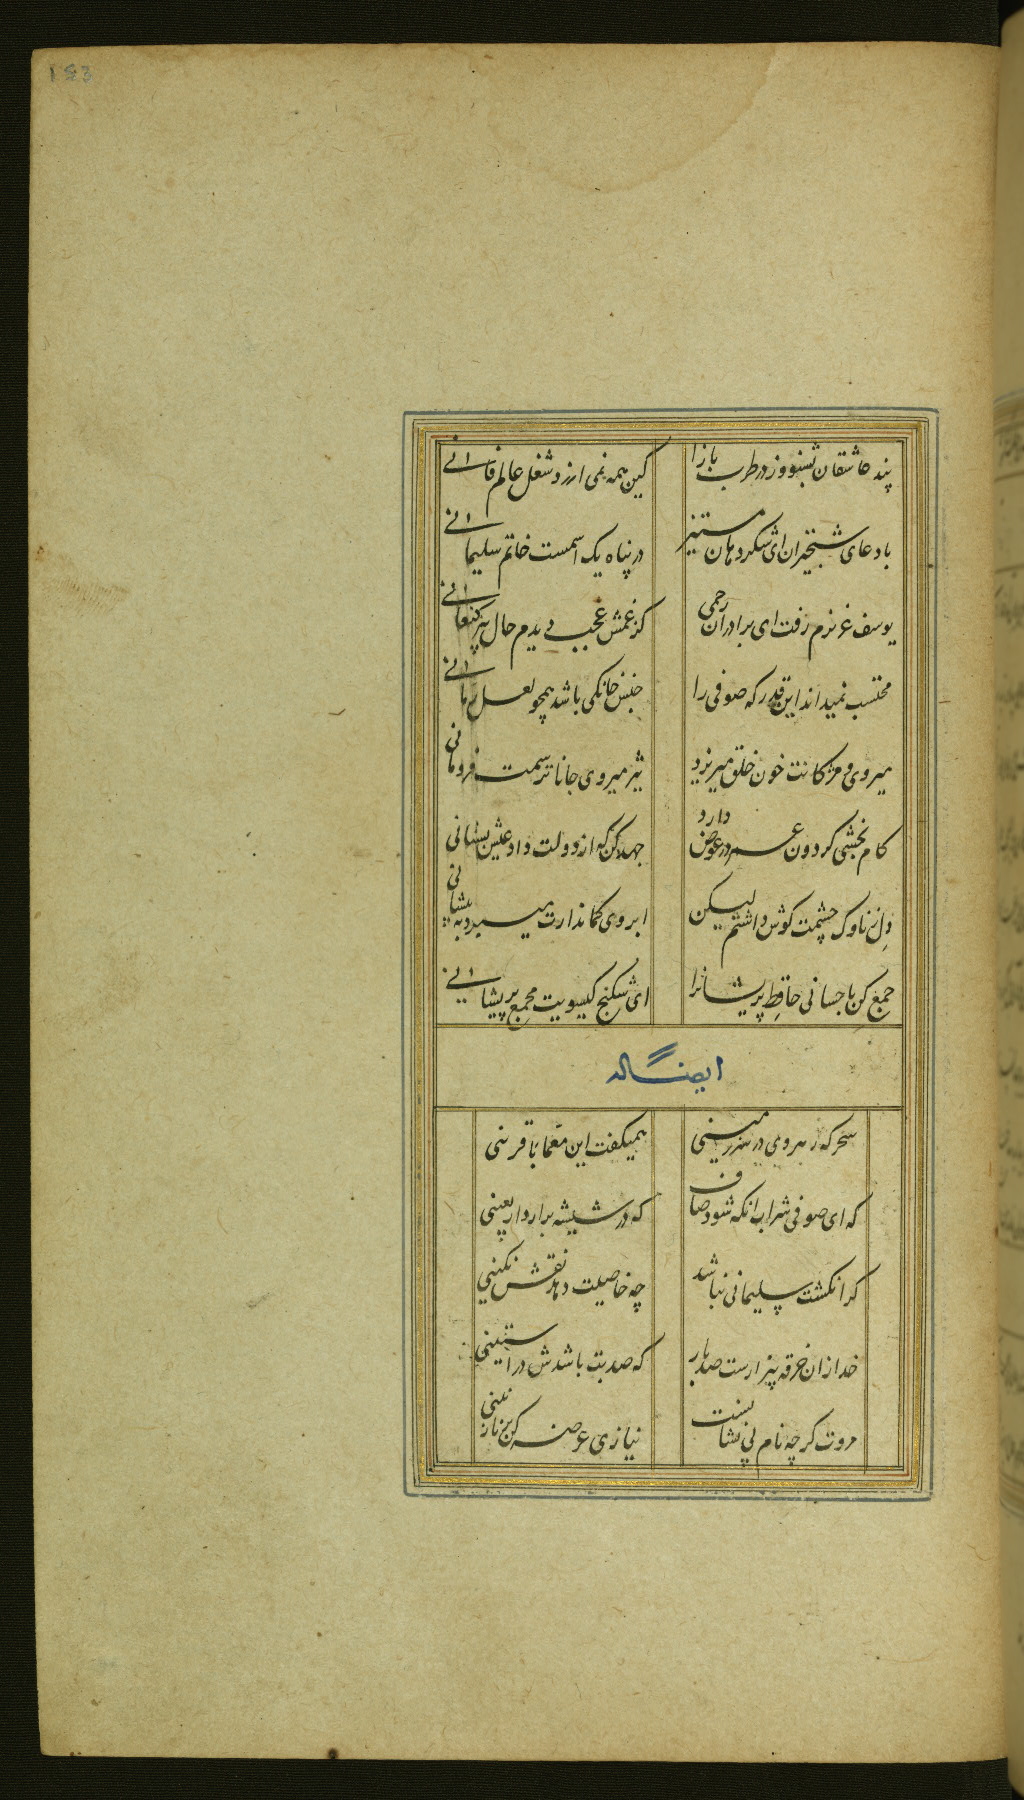 143
پند عاشقان بشنو وز در طرب بازا
کین همه نمی ارزد شغل عالم فانی
با دعای شبخیزان ای شکر دهان مستیز
در پناه یک اسمست خاتم سلیمانی
یوسف عزیزم رفت ای برادران رحمی
کز غمش عجب دیدم حال پیر کنعانی
محتسب نمیداند این قدر که صوفی را
جنس خانکی باشد همچو لعل رمانی
میروی و مژکانت خون خلق میریزد
تیز میروی جانا ترسمت فرومانی
کام بخشی کردون عمر در عوض دارد
جهد کن که از دولت داد عیش بستانی
دل ز ناوک چشمت کوش داشتم لیکن
ابروی کماندارت میبرد به پیشانی
جمع کن باحسانی حافظ پریشانرا
ای شکنج کیسویت مجمع پریشانی
ایضاله
سحرکه رهروی در سرزمینی
همیکفت این معما با قرینی
که ای صوفی شراب انکه شود صاف
که در شیشه برارد اربعینی
کر انکشت سلیمانی نباشد
چه خاصیت دهد نقش نکینی
خدا زان خرقه بیزارست صدبار
که صد بت باشدش در استینی
مروت کرچه نام بی نشانست
نیازی عرضه کن بر نازنینی